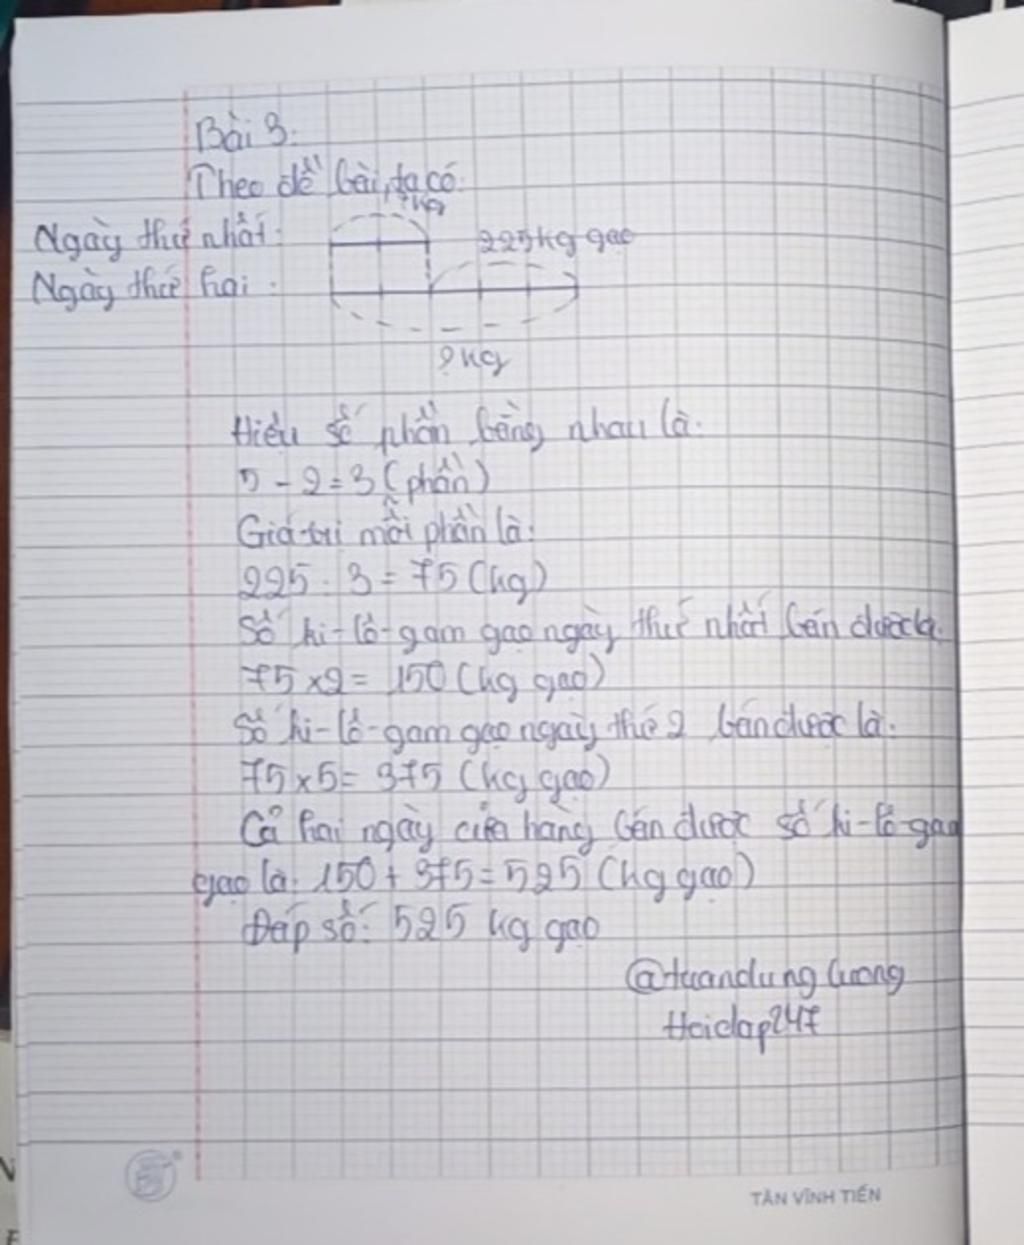 Bài 3:
Theo đề bài, ta có:
? kg
Ngày thứ nhất:
225kg gạo
Ngày thứ hai:
? kg
Hiệu số phần bằng nhau là:
5 - 2 = 3 (phần)
Giá trị mỗi phần là:
225 : 3 = 75 (kg)
Số ki-lô-gam gạo ngày thứ nhất bán được là:
75 x 2 = 150 (kg gạo)
Số ki-lô-gam gạo ngày thứ 2 bán được là:
75 x 5 = 375 (kg gạo)
Cả hai ngày cửa hàng bán được số ki-lô-gam
gạo là: 150 + 375 = 525 (kg gạo)
Đáp số: 525 kg gạo
@tuandungluong
Hoidap247
TÂN VĨNH TIẾN